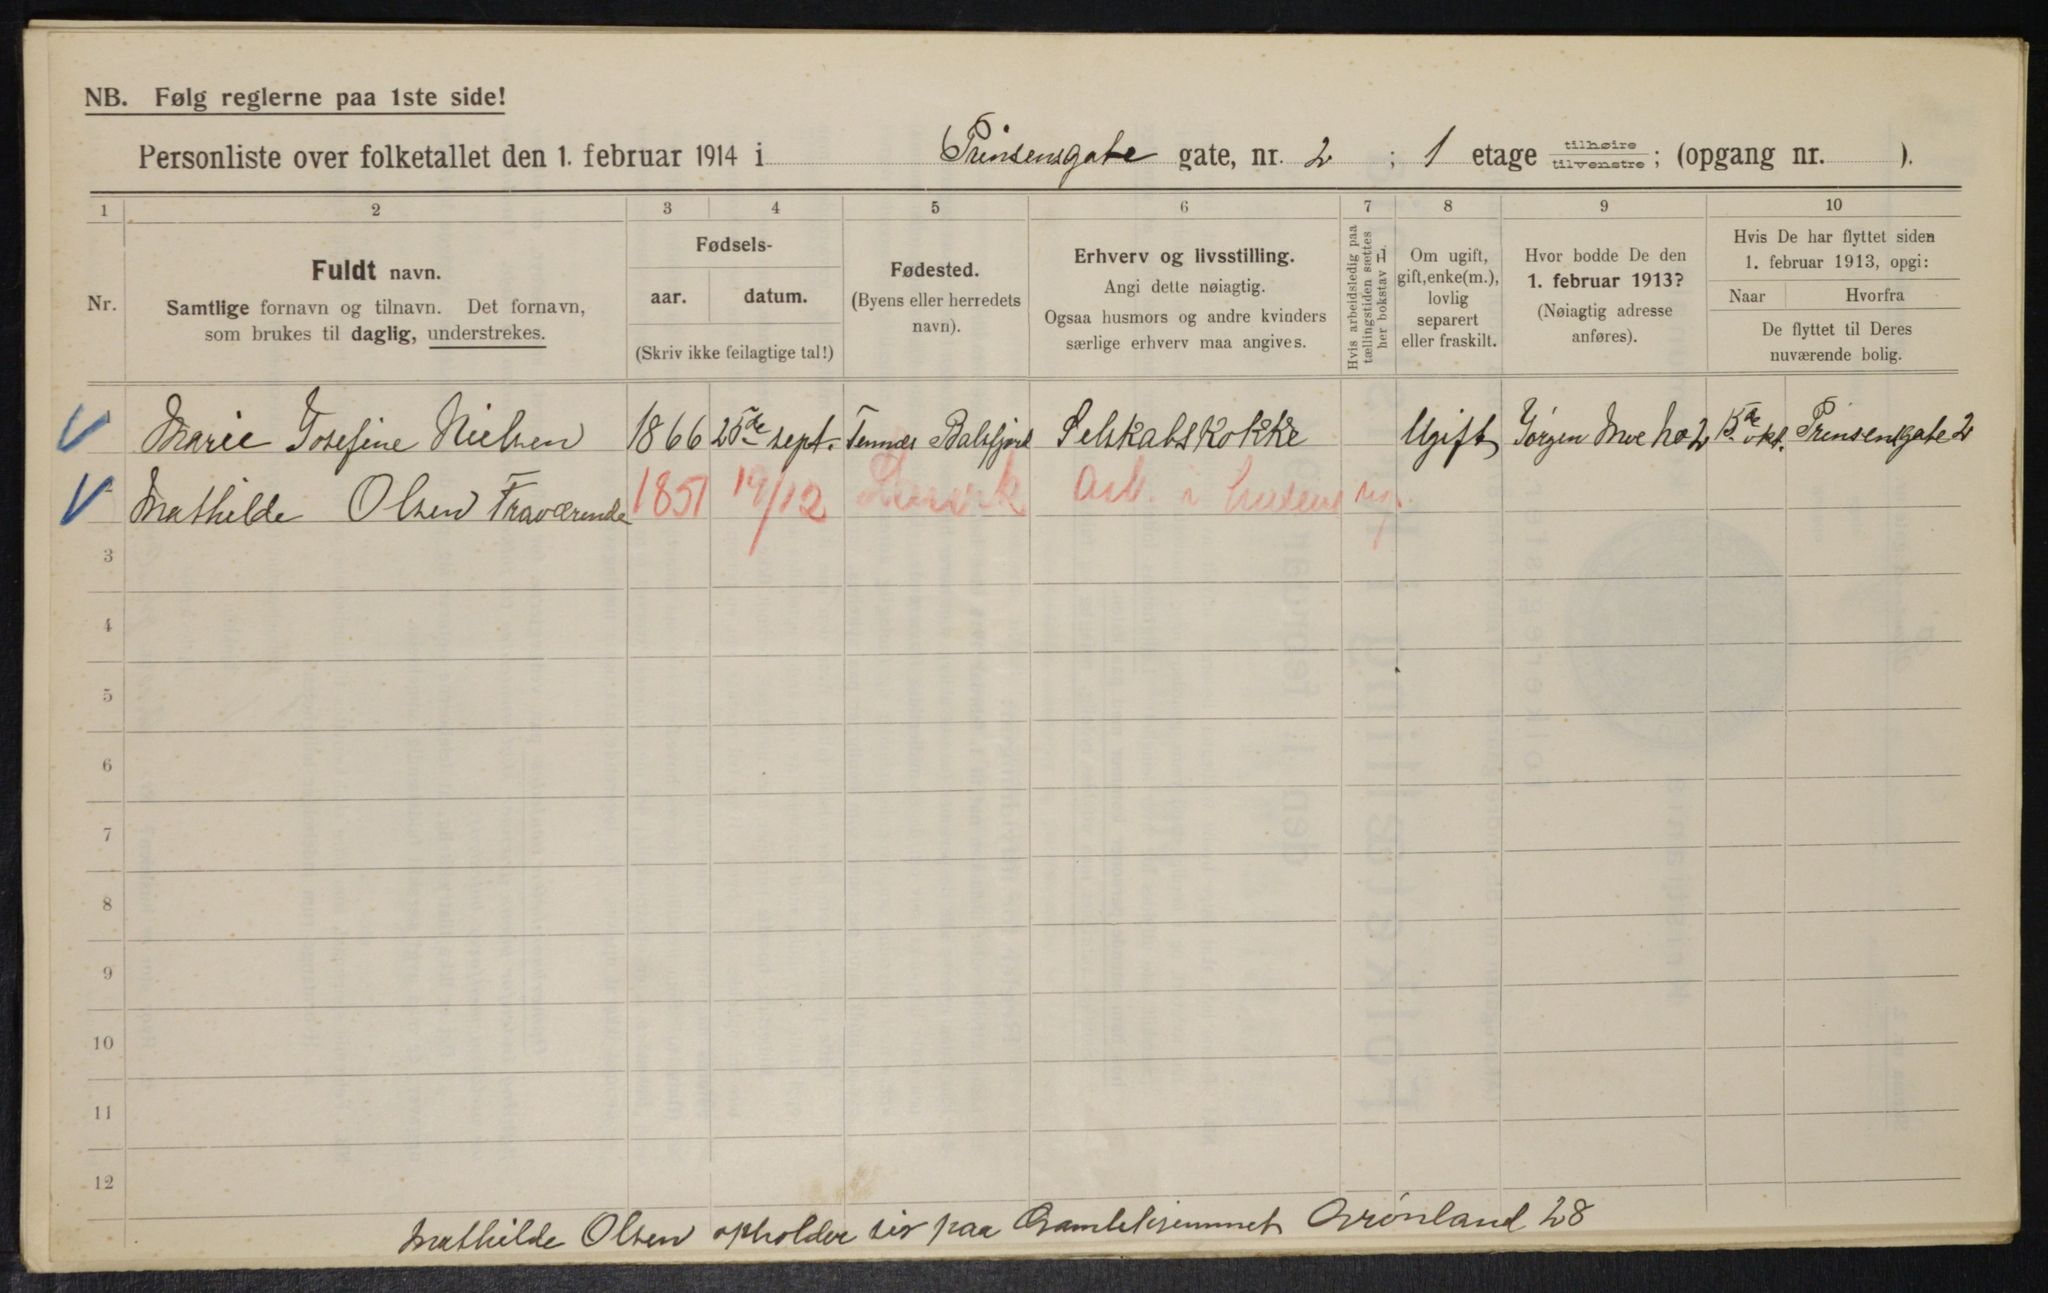 NB. Følg reglerne paa 1ste side!
Personliste over folketallet den 1. februar 1914 i Prinsensgate gate, nr. 2 ; 1 etage tilhøire tilvenstre; (opgang nr. ).
1 2 3 4 5 6 7 8 9 10
Nr.
Fuldt navn.
Samtlige fornavn og tilnavn. Det fornavn,
som brukes til daglig, understrekes.
Fødsels-
aar. datum.
(Skriv ikke feilagtige tal!)
Fødested.
(Byens eller herredets
navn).
Erhverv og livsstilling.
Angi dette nøiagtig.
Ogsaa husmors og andre kvinders
særlige erhverv maa angives.
Hvis arbeidsledig paa
tællingstiden sættes
her bokstav L.
Om ugift,
gift, enke(m.),
lovlig
separert
eller fraskilt.
Hvor bodde De den
1. februar 1913?
(Nøiagtig adresse
anføres).
Hvis De har flyttet siden
1. februar 1913, opgi:
Naar Hvorfra
De flyttet til Deres
nuværende bolig.
Marie Josefine Nielsen 1866 25de sept. Tennæs Balsfjord Selskabskokke Ugift Jørgen Moe No 2 okt. Prinsensgate 2
Mathilde Olsen Fraværende 1851 19/12 Arb. i
3
4
5
6
7
8
9
10
11
12
Mathilde Olsen opholder sig paa Gamlehjemmet Grønland 28